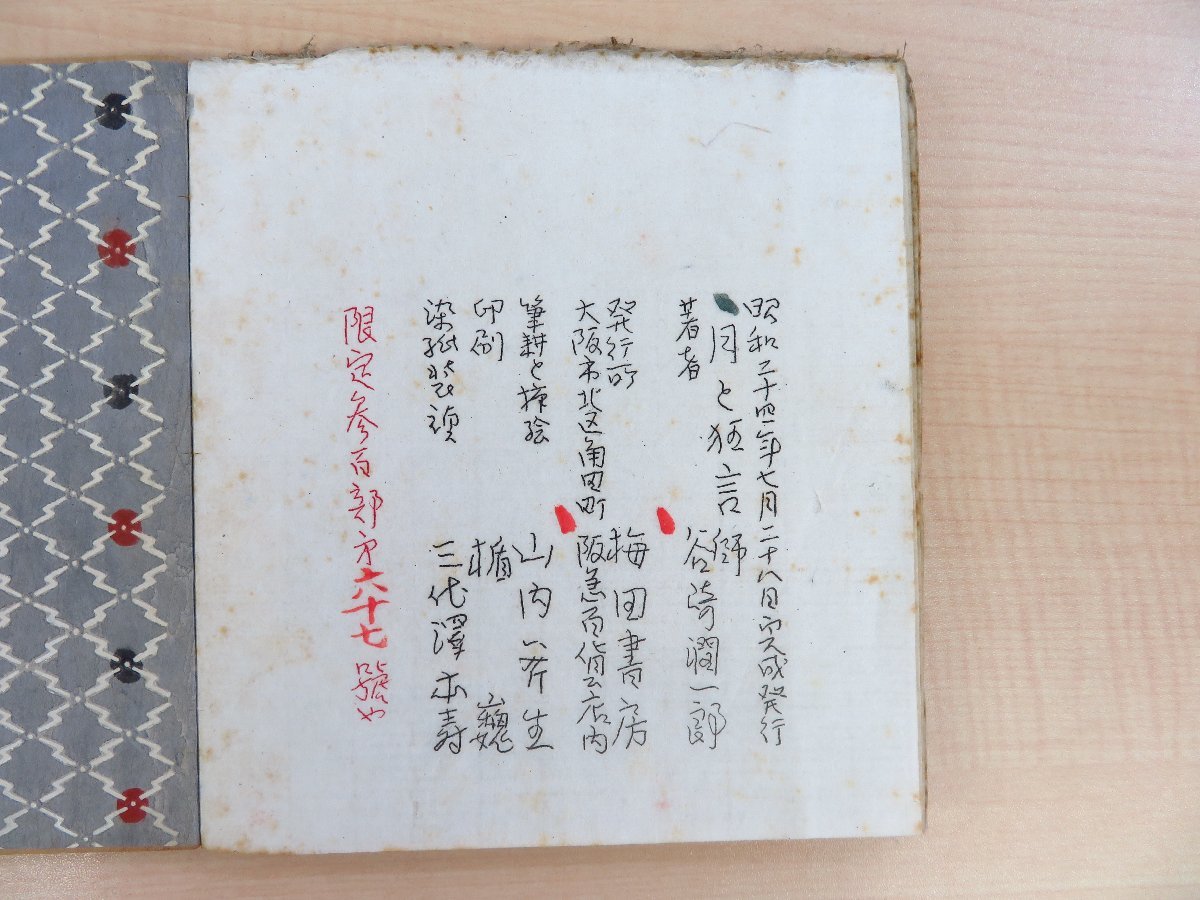 昭和二十四年七月二十八日完成発行
月と狂言師
著者 谷崎潤一郎
発行所 梅田書房
大阪市北区角田町 阪急百貨店内
筆耕と挿絵 山内金三生
印刷 楯 巍
染紙装幀 三代澤本寿
限定参百部第六十七號や